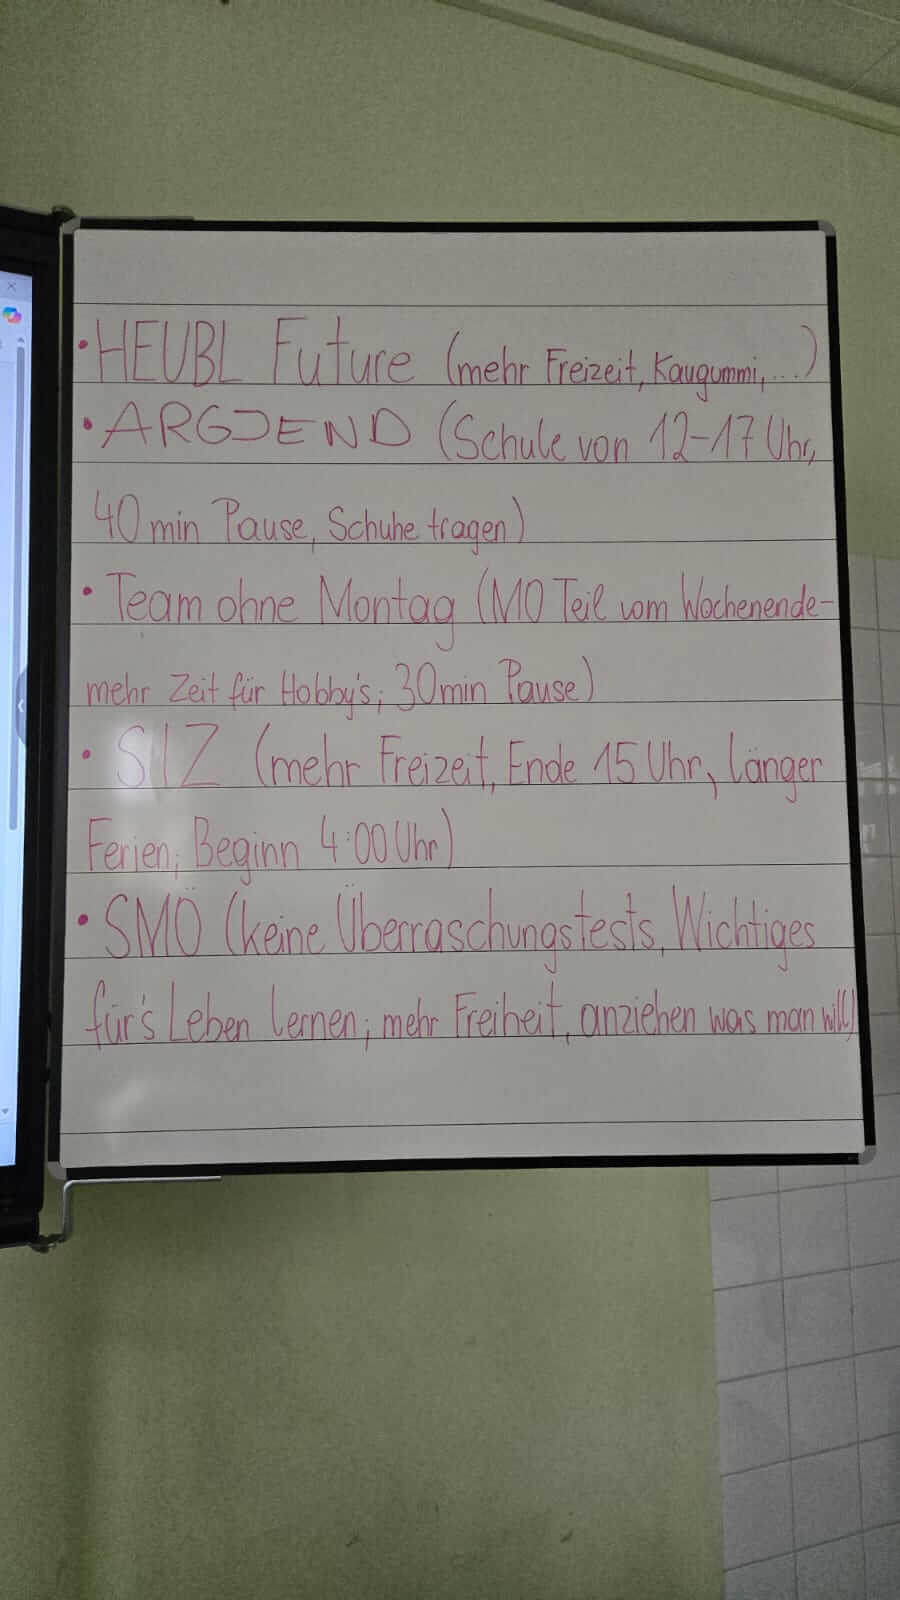 • HEUBL Future (mehr Freizeit, Kaugummi, ...)
• ARGJEND (Schule von 12-17 Uhr,
40 min Pause, Schuhe tragen)
• Team ohne Montag (MO Teil vom Wochenende-
mehr Zeit für Hobby's; 30min Pause)
• SIZ (mehr Freizeit, Ende 15 Uhr, länger
Ferien; Beginn 4:00 Uhr)
• SMÖ (keine Überraschungstests, Wichtiges
für's Leben lernen; mehr Freiheit, anziehen was man will)